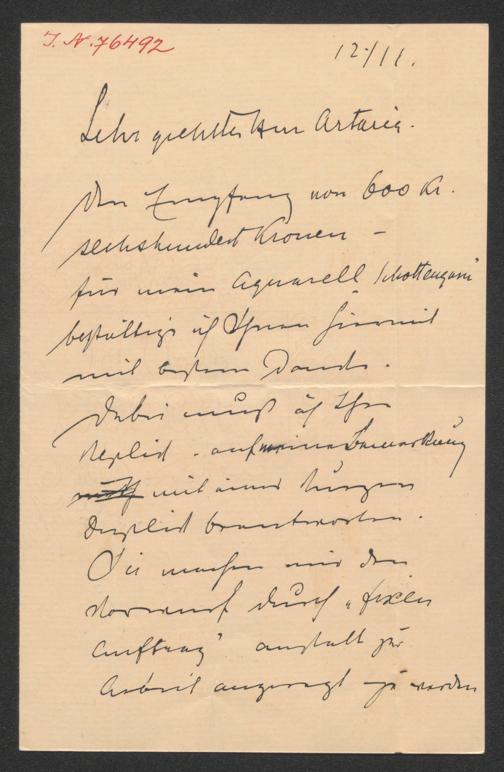 J. N. 76492
12./11.
Sehr geehrter Herr Artaria.
Den Empfang von 600 Kr.
sechshundert Kronen –
für mein Aquarell „Schottengasse“
bestättige ich Ihnen hiermit
mit bestem Dank.
Dabei muß ich Ihre
Replik – auf meine Bemerkung
mit einer kurzen
Duplik beantworten.
Sie machen mir den
Vorwurf durch „fixen
Auftrag“ anstatt zur
Arbeit angeregt zu werden